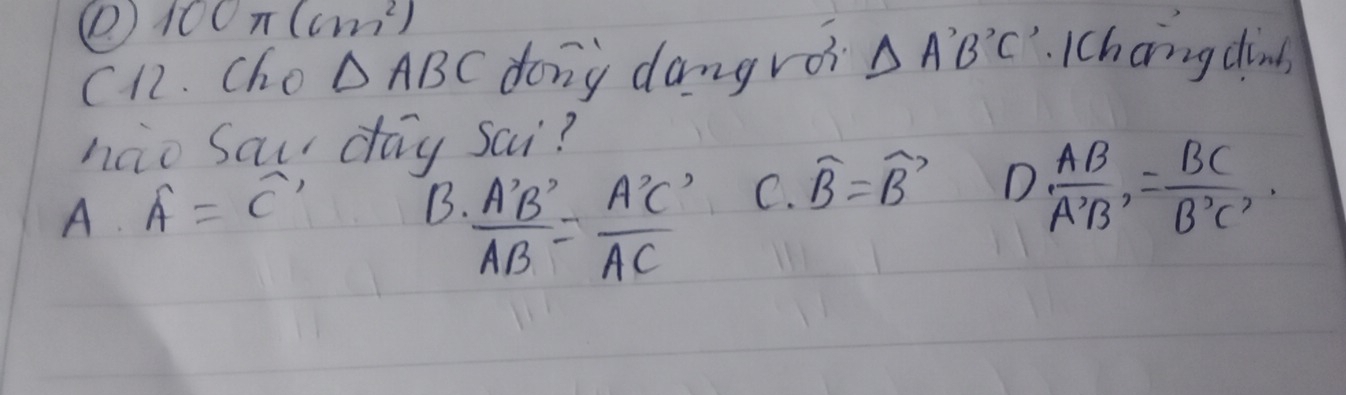 Ⓓ 100 π (cm²)
C12. Cho Δ ABC đồng dạng với Δ A'B'C'. Khẳng định
nào sau đây sai?
A. Â = Ĉ' B. A'B'/AB = A'C'/AC C. B̂ = B̂' D. AB/A'B' = BC/B'C'.